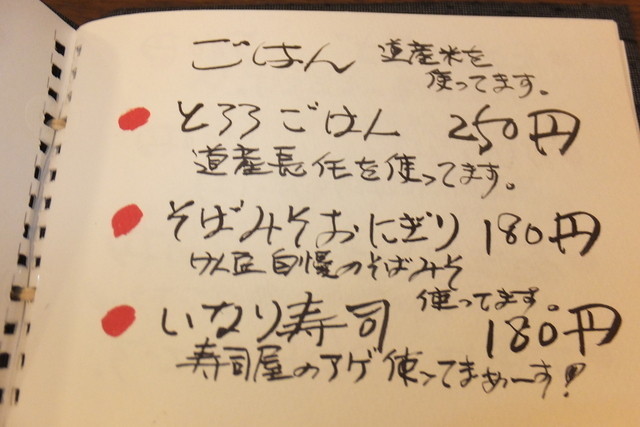 ごはん 道産米を
使ってます。
とろろごはん 250円
道産長任を使ってます。
そばみそおにぎり 180円
けん匠自慢のそばみそ
使ってます。
いなり寿司 180円
寿司屋のアゲ使ってまぁーす!